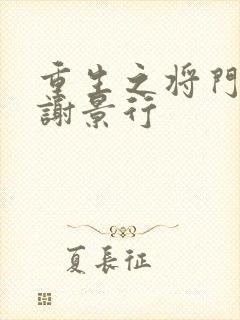 重生之将門
謝景行
夏長征